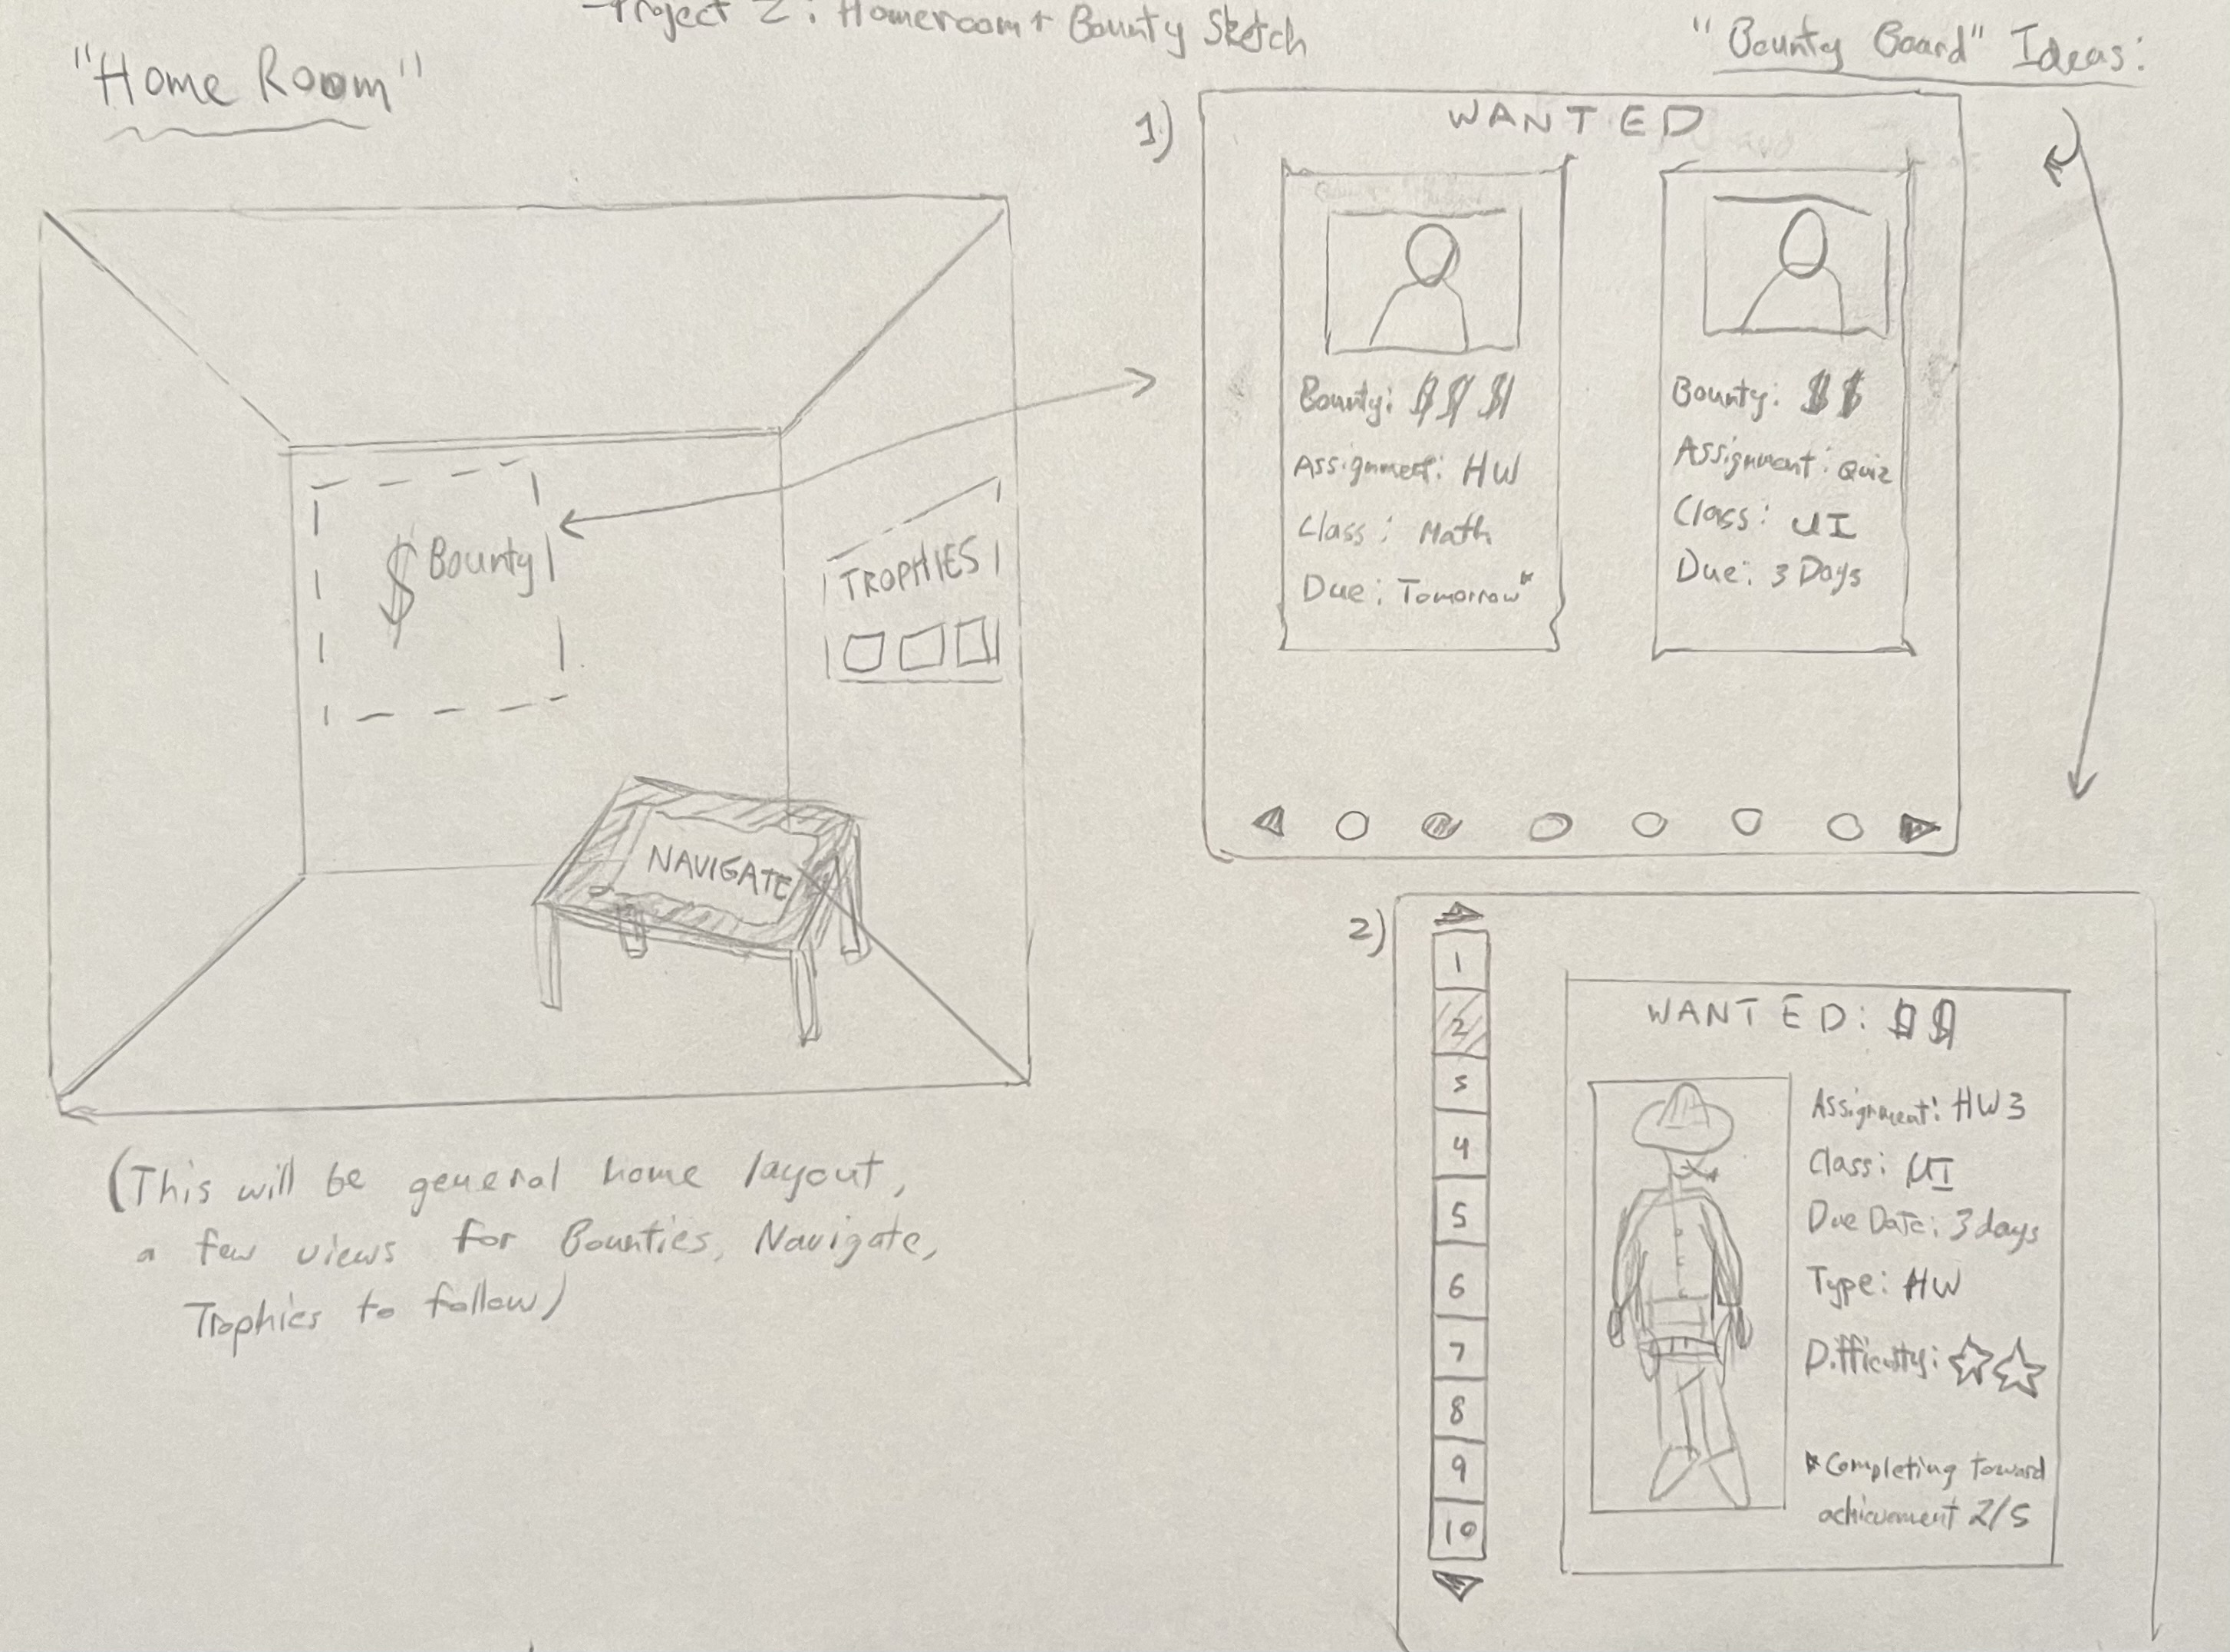 Project 2: Homeroom + Bounty Sketch
"Home Room"
"Bounty Board" Ideas:
$ Bounty
TROPHIES
NAVIGATE
(This will be general home layout,
a few views for Bounties, Navigate,
Trophies to follow)
1)
WANTED
Bounty: $$$
Assignment: HW
Class: Math
Due: Tomorrow*
Bounty: $$
Assignment: Quiz
Class: UI
Due: 3 Days
2)
1
2
3
4
5
6
7
8
9
10
WANTED: $$
Assignment: HW3
Class: UI
Due Date: 3 days
Type: HW
Difficulty: ☆☆
*Completing toward
achievement 2/5